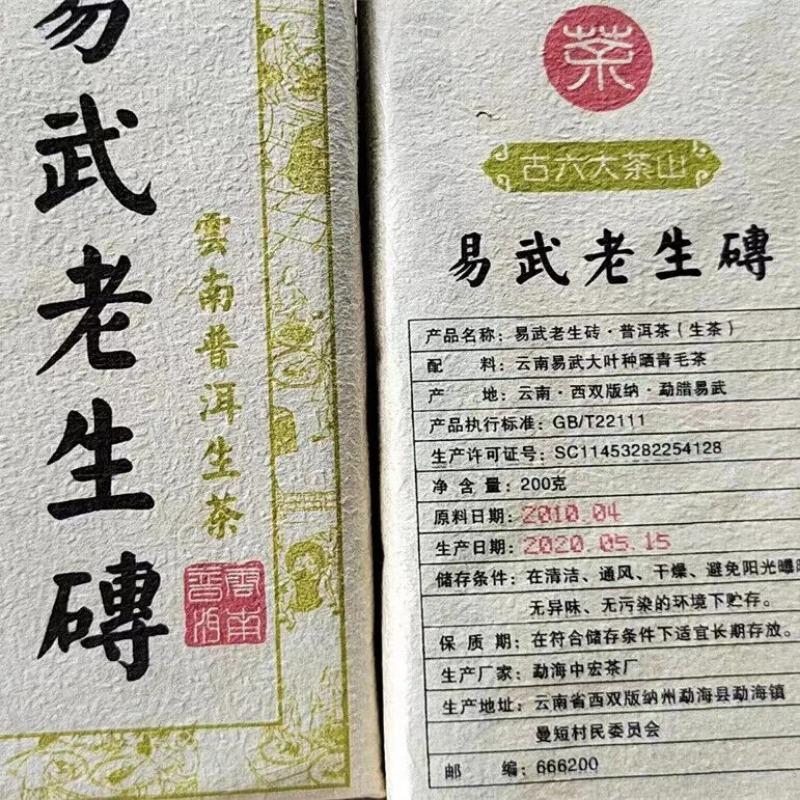 易武老生磚
雲南普洱生茶
雲南
普洱
茶
古六大茶山
易武老生磚
产品名称：易武老生砖·普洱茶（生茶）
配 料：云南易武大叶种晒青毛茶
产 地：云南·西双版纳·勐腊易武
产品执行标准：GB/T22111
生产许可证号：SC11453282254128
净 含 量：200克
原料日期：2010.04
生产日期：2020.05.15
储存条件：在清洁、通风、干燥、避免阳光曝晒
无异味、无污染的环境下贮存。
保 质 期：在符合储存条件下适宜长期存放。
生产厂家：勐海中宏茶厂
生产地址：云南省西双版纳州勐海县勐海镇
曼短村民委员会
邮 编：666200